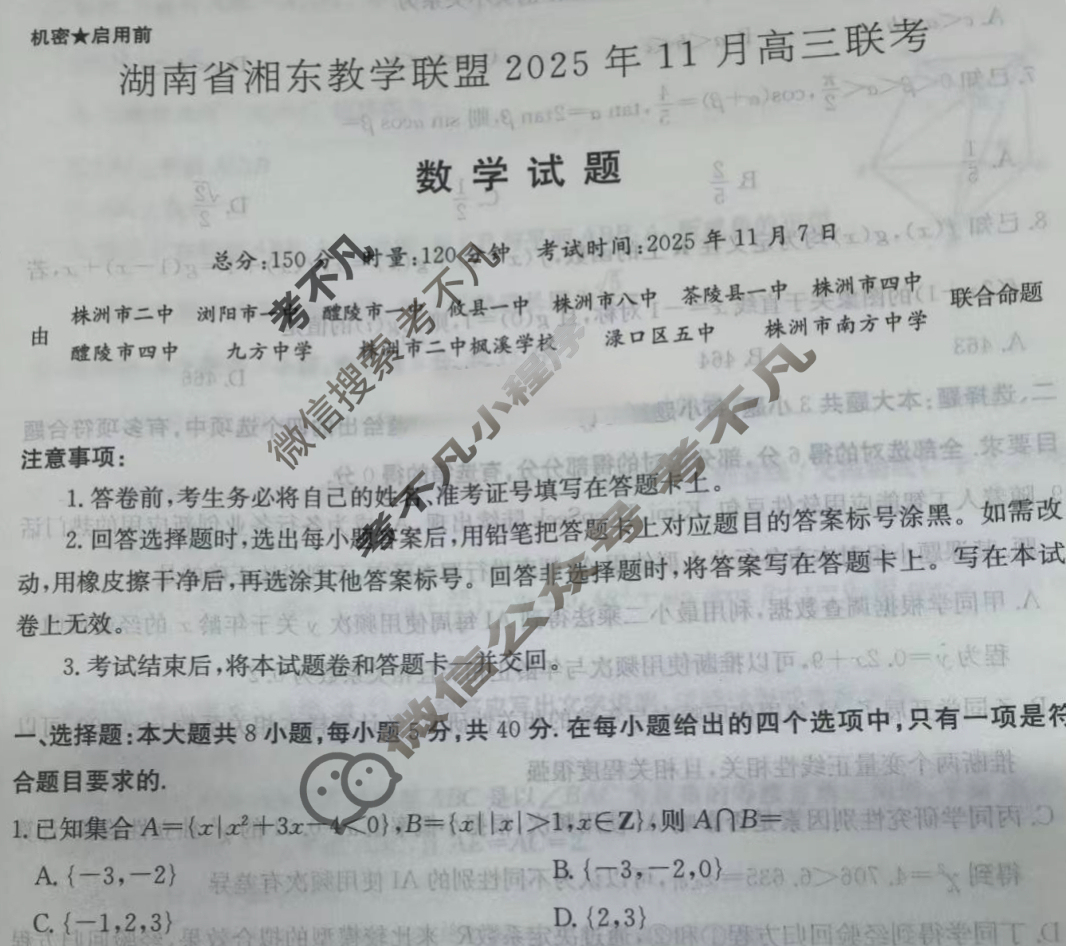 机密★启用前
湖南省湘东教学联盟2025年11月高三联考
数学试题
总分:150分 时量:120分钟 考试时间:2025年11月7日
由
株洲市二中 浏阳市一中 醴陵市一中 攸县一中 株洲市八中 茶陵县一中 株洲市四中
醴陵市四中 九方中学 株洲市二中枫溪学校 渌口区五中 株洲市南方中学
联合命题
注意事项:
1.答卷前,考生务必将自己的姓名、准考证号填写在答题卡上。
2.回答选择题时,选出每小题答案后,用铅笔把答题卡上对应题目的答案标号涂黑。如需改
动,用橡皮擦干净后,再选涂其他答案标号。回答非选择题时,将答案写在答题卡上。写在本试
卷上无效。
3.考试结束后,将本试题卷和答题卡一并交回。
一、选择题:本大题共8小题,每小题5分,共40分.在每小题给出的四个选项中,只有一项是符
合题目要求的.
1.已知集合A={x|x²+3x-4<0},B={x||x|>1,x∈Z},则A∩B=
A.{-3,-2}
B.{-3,-2,0}
C.{-1,2,3}
D.{2,3}
考不凡
微信搜索 考不凡
考不凡小程序
微信公众号 考不凡